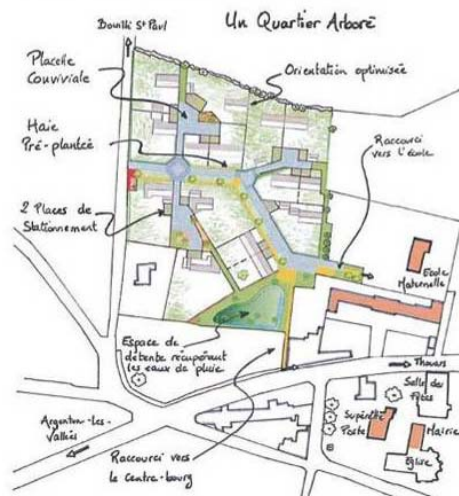 Bouillé St Paul
Un Quartier Arboré
Placette
Conviviale
Orientation optimisée
Haie
Pré-plantée
Raccourci
vers l'école
2 Places de
Stationnement
École
Maternelle
Espace de
détente récupérant
les eaux de pluie
Thouars
Salle des
Fêtes
Argenton-Les-
Vallées
Supérette
Poste
Mairie
Raccourci vers
le centre-bourg
Église